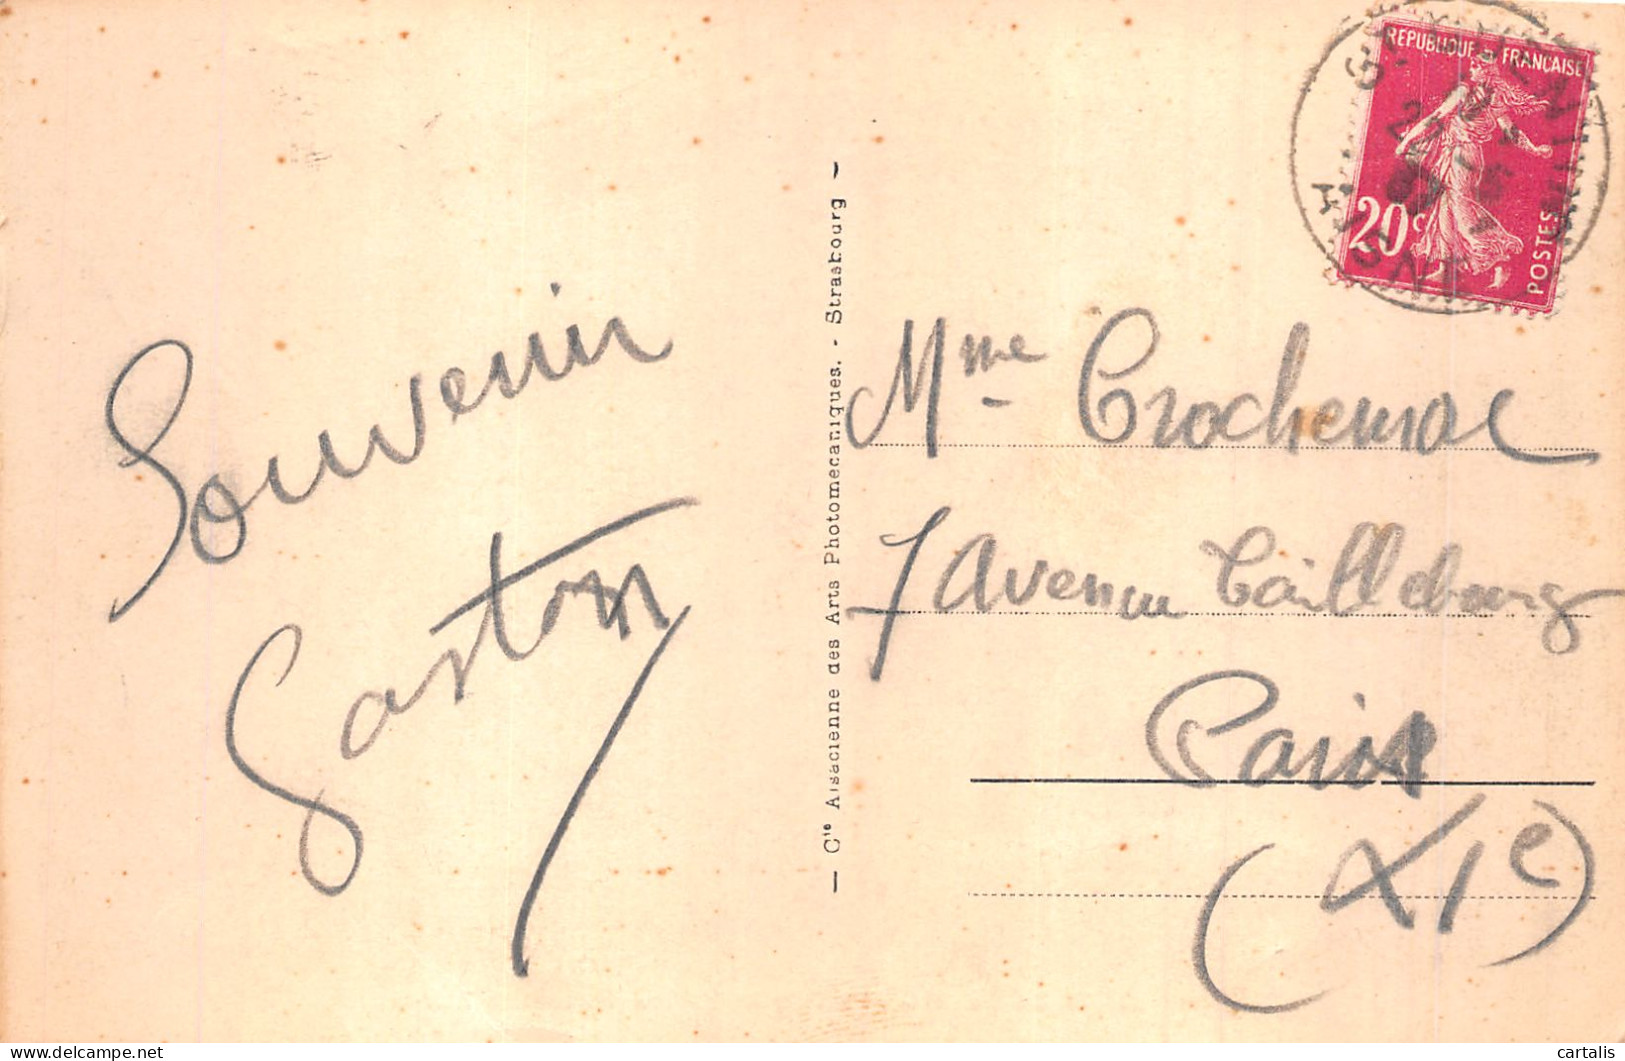 Souvenir
Gaston
— Cie Alsacienne des Arts Photomecaniques. - Strasbourg —
REPUBLIQUE FRANCAISE
20c
POSTES
ST QUENTIN
AISNE
Mme
7 Avenue Taillebourg
Paris
(XIe)
cartalis